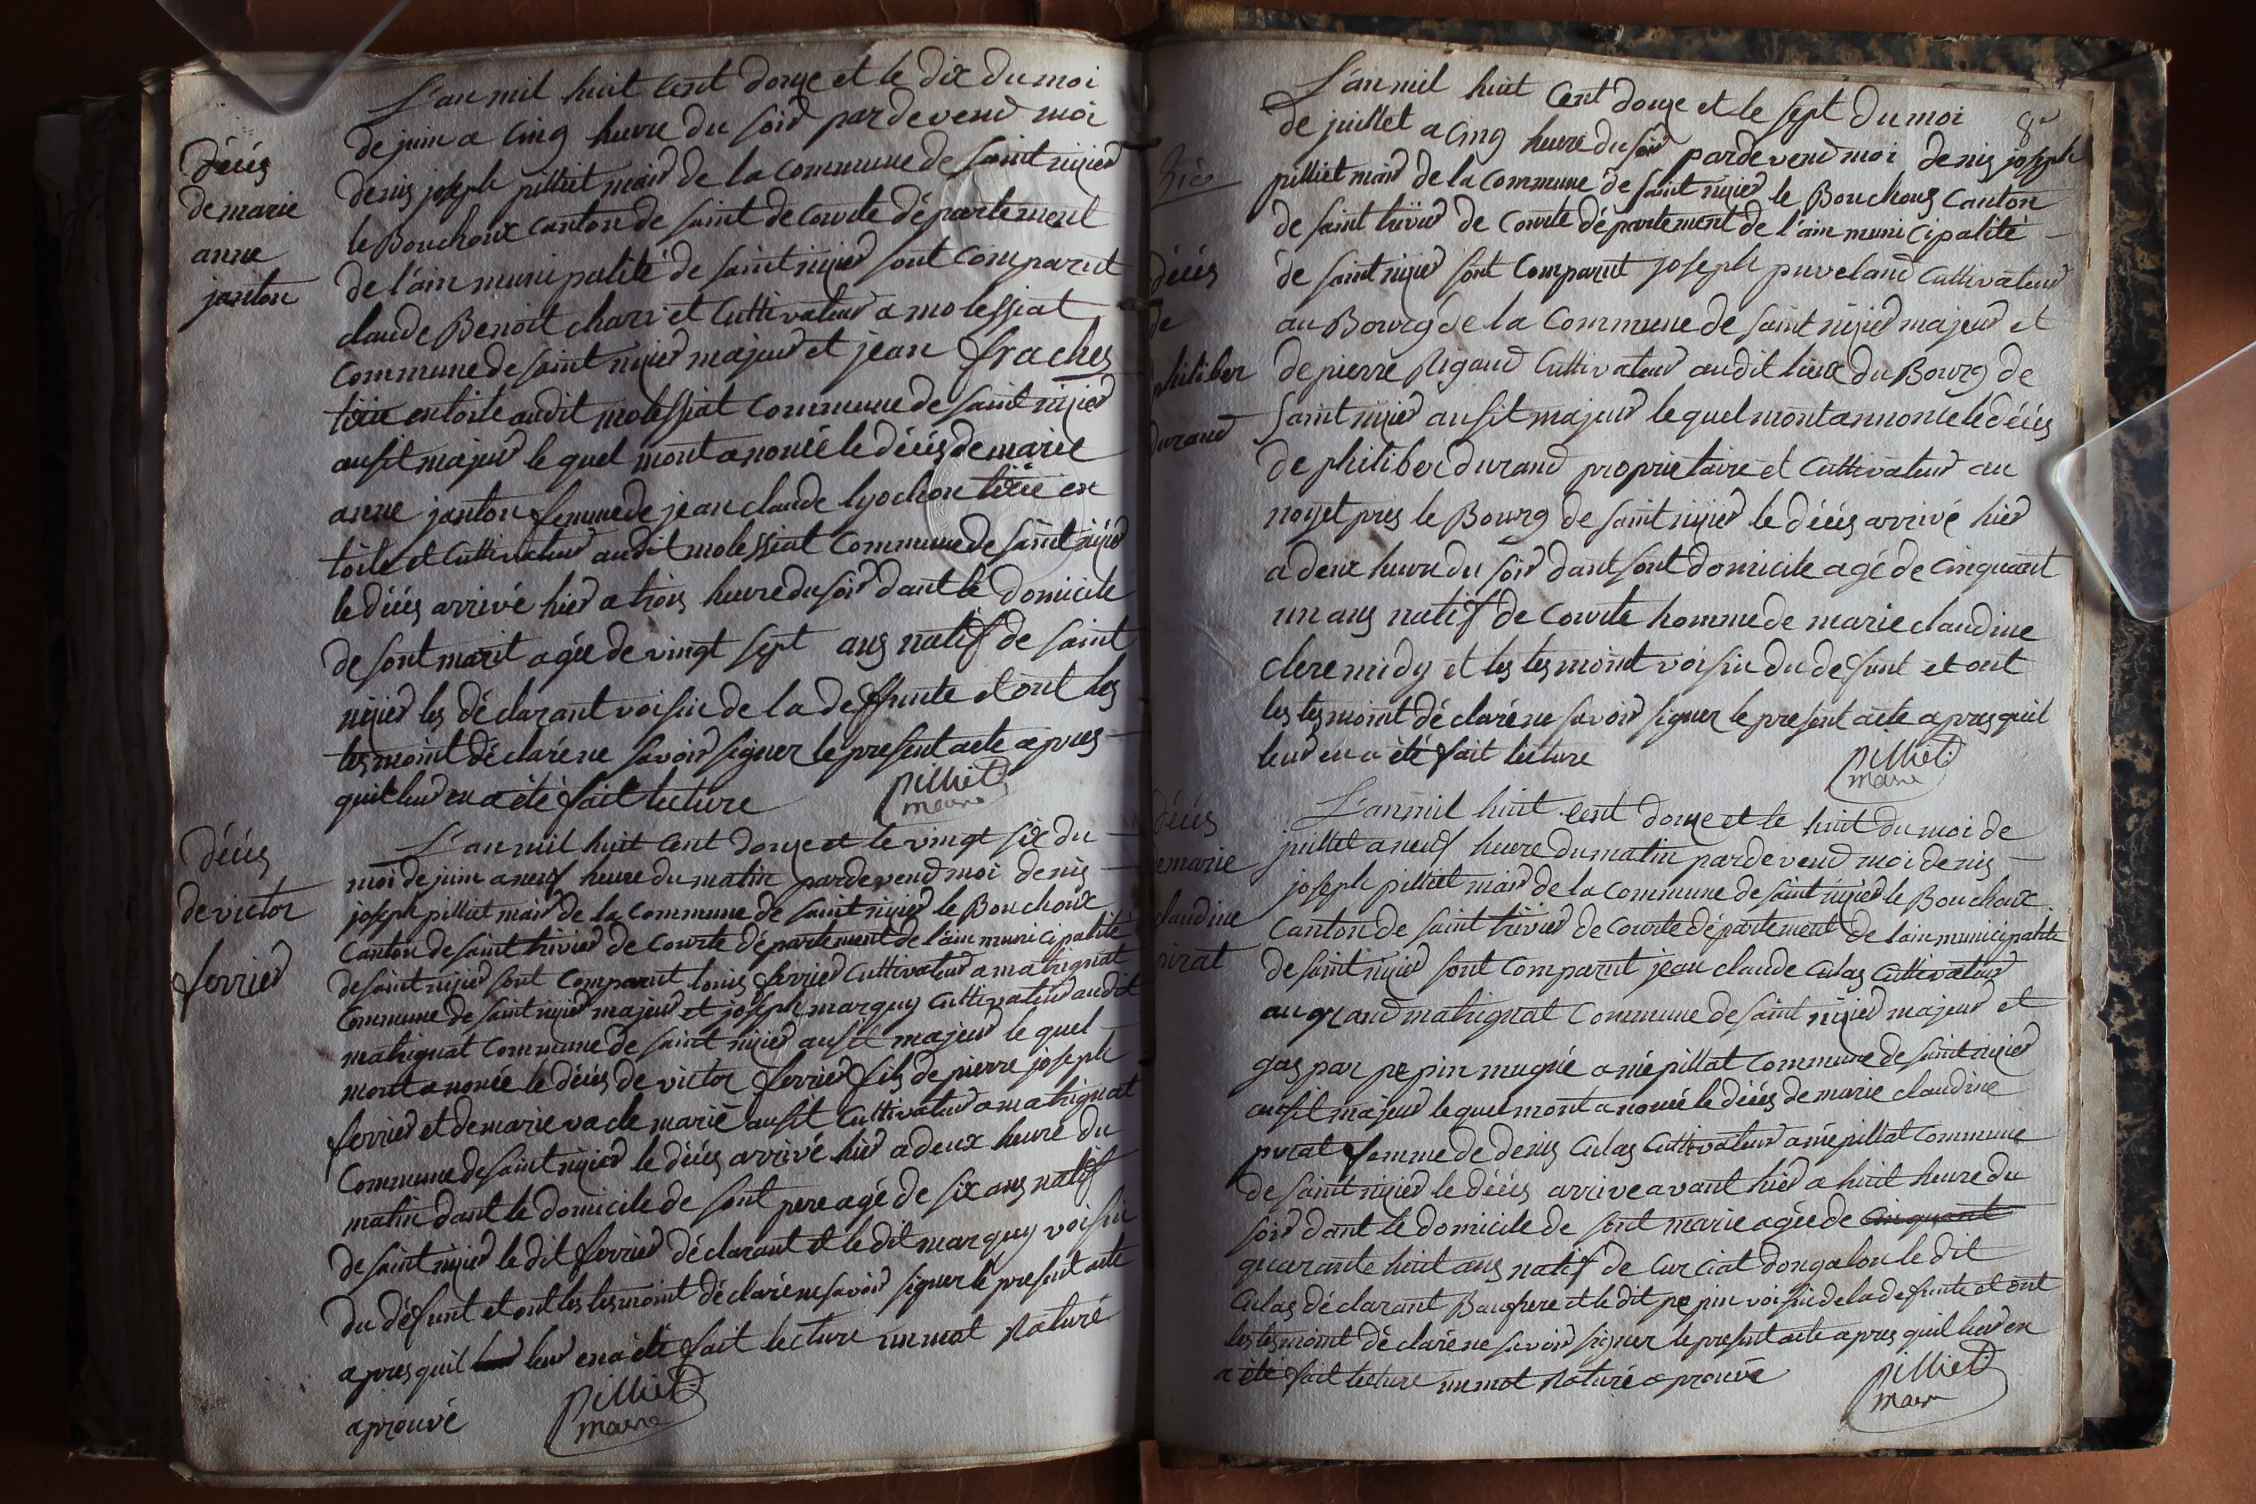 décés
de marie
anne
janton
L'an mil huit cent douze et le dix du moi
de juin a cinq heure du soir pardevend moi
denis joseph pilliet mair de la commune de saint nizier
le Bouchoux canton de saint de courte département
de l'ain municipalité de saint nizier sont comparut
claude Benoit charvet cultivateur a molessiat
commune de saint nizier majeur et jean fraches
tixie en toile audit molessiat commune de saint nizier
ausit majeur le quel mont anoncé le décés de marie
anne janton femme de jean claude lyochon tixie en
toile et cultivateur audit molessiat commune de saint nizier
le décés arrivé hier a trois heure du soir dant le domicile
de sont marit agée de vingt sept ans natif de saint
nizier les déclarant voisin de la deffunte et ont les
tesmoint déclaré ne savoir signer le present acte apres
quil leur en a été fait lecture
pilliet
maire
décés
de victor
ferrier
L'an mil huit cent douze et le vingt six du
moi de juin a neuf heure du matin pardevend moi denis
joseph pilliet mair de la commune de saint nizier le Bouchoux
canton de saint trivier de courte département de l'ain municipalité
de saint nizier sont comparut louis ferrier cultivateur a matrignat
commune de saint nizier majeur et joseph marguy cultivateur audit
matrignat commune de saint nizier ausit majeur le quel
mont anoncé le décés de victor ferrier fils de pierre joseph
ferrier et de marie vacle marié ausit cultivateur a matrignat
commune de saint nizier le décés arrivé hier a deux heure du
matin dant le domicile de sont pere agé de six ans natif
de saint nizier le dit ferrier déclarant et le dit marguy voisin
du défunt et ont les tesmoint déclaré ne savoir signer le present acte
apres quil leur en a été fait lecture un mot raturé
aprouvé
pilliet
maire
8
décés
de
philiber
durand
L'an mil huit cent douze et le sept du moi
de juillet a cinq heure du soir pardevend moi denis joseph
pilliet mair de la commune de saint nizier le Bouchoux canton
de saint trivier de courte département de l'ain municipalité
de saint nizier sont comparut joseph puveland cultivateur
au Bourg de la commune de saint nizier majeur et
de pierre Rigaud cultivateur audit lieux du Bourg de
saint nizier ausit majeur le quel mont annoncé le décés
de philiber durand proprietaire et cultivateur au
noyet pres le Bourg de saint nizier le décés arrivé hier
a deux heure du soir dant sont domicile agé de cinquant
un ans natif de courte homme de marie claudine
clere midy et les tesmoint voisin du defunt et ont
les tesmoint déclaré ne savoir signer le present acte apres quil
leur en a été fait lecture
pilliet
maire
décés
de marie
claudine
purat
L'an mil huit cent douze et le huit du moi de
juillet a neuf heure du matin pardevend moi denis
joseph pilliet mair de la commune de saint nizier le Bouchoux
canton de saint trivier de courte département de lain municipalité
de saint nizier sont comparut jean claude culas cultivateur
au grand matrignat commune de saint nizier majeur et
gaspar pepin mugnié a mépillat commune de saint nizier
ausit majeur le quel mont anoncé le décés de marie claudine
purat femme de denis culas cultivateur a mépillat commune
de saint nizier le décés arrive avant hier a huit heure du
soir dant le domicile de sont marie agée de cinquant
quarante huit ans natif de curciat dongalon le dit
culas déclarant Baufrere et le dit pepin voisin de la defunte et ont
les tesmoint déclaré ne savoir signer le present acte apres quil leur en
a été fait lecture un mot raturé aprouvé
pilliet
mair